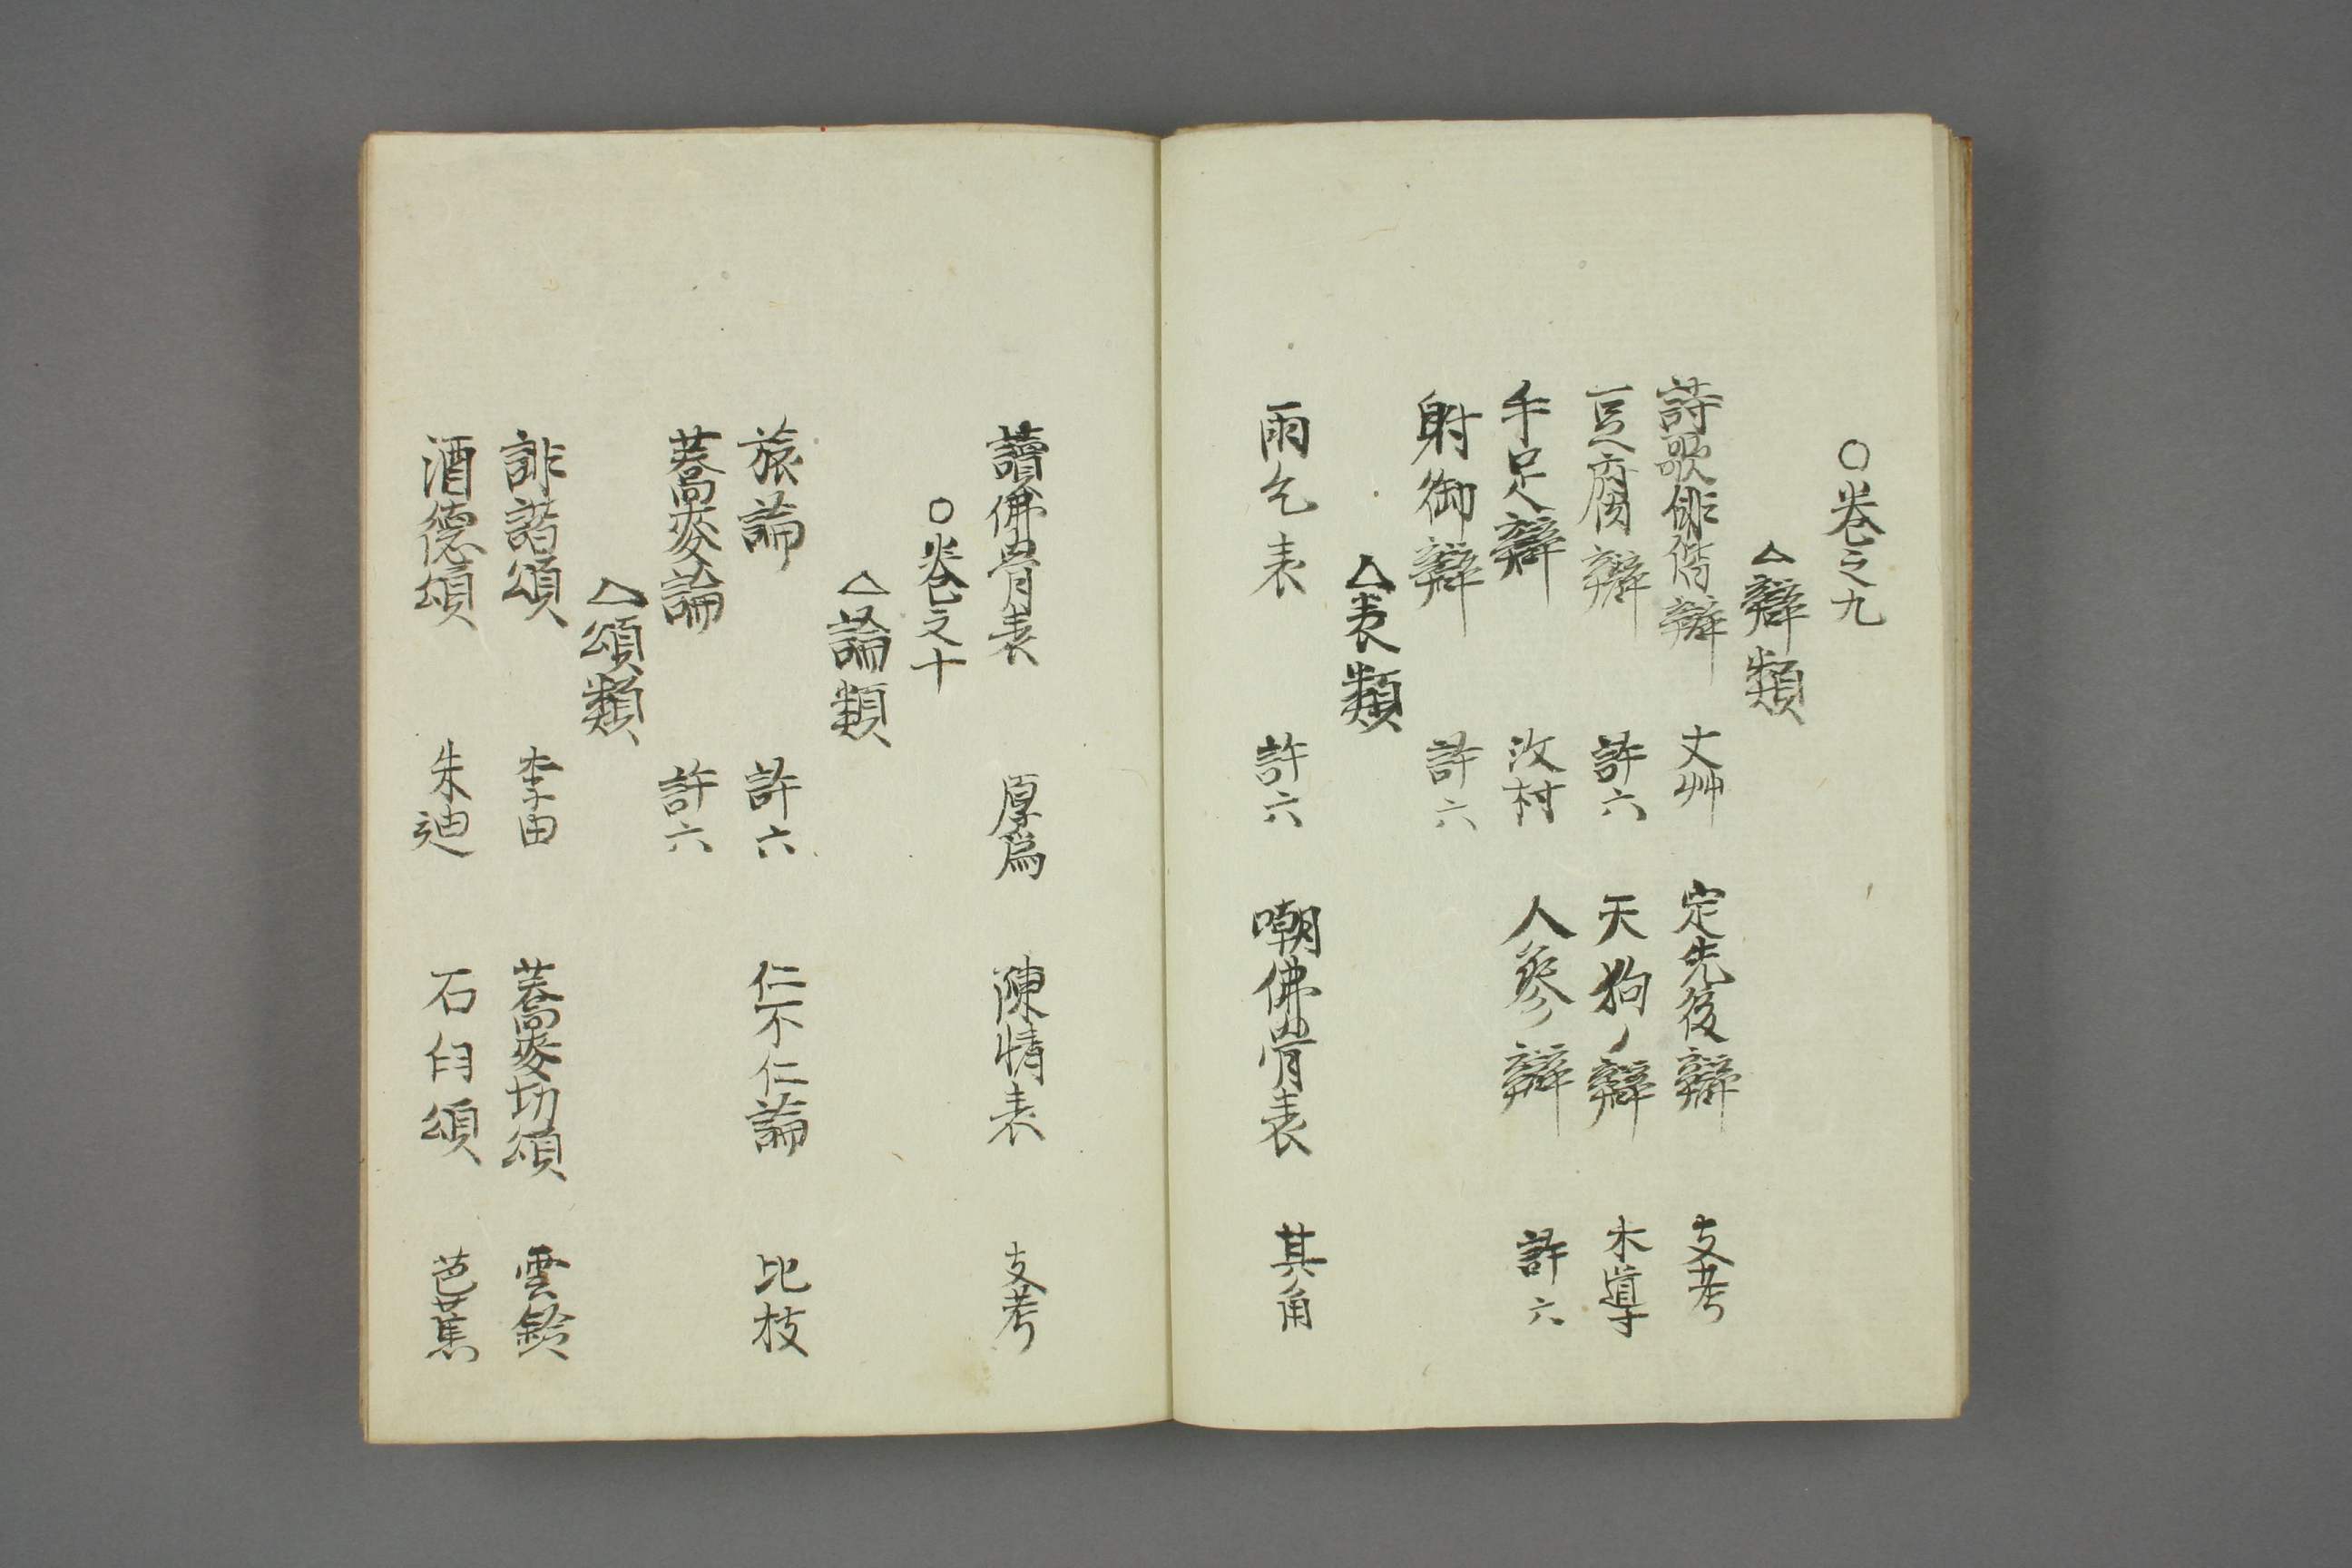 ○卷之九
△辯類
詩歌俳偕辯 丈艸 定先後辯 支考
豆腐辯 許六 天狗ノ辯 木導
手足辯 汶村 人參辯 許六
射御辯 許六
△表類
雨乞表 許六 嘲佛骨表 其角
讀佛骨表 厚爲 陳情表 支考
○卷之十
△論類
旅論 許六 仁不仁論 比枝
蕎麥論 許六
△頌類
誹諧頌 李由 蕎麥切頌 雲鈴
酒德頌 朱迪 石臼頌 芭蕉